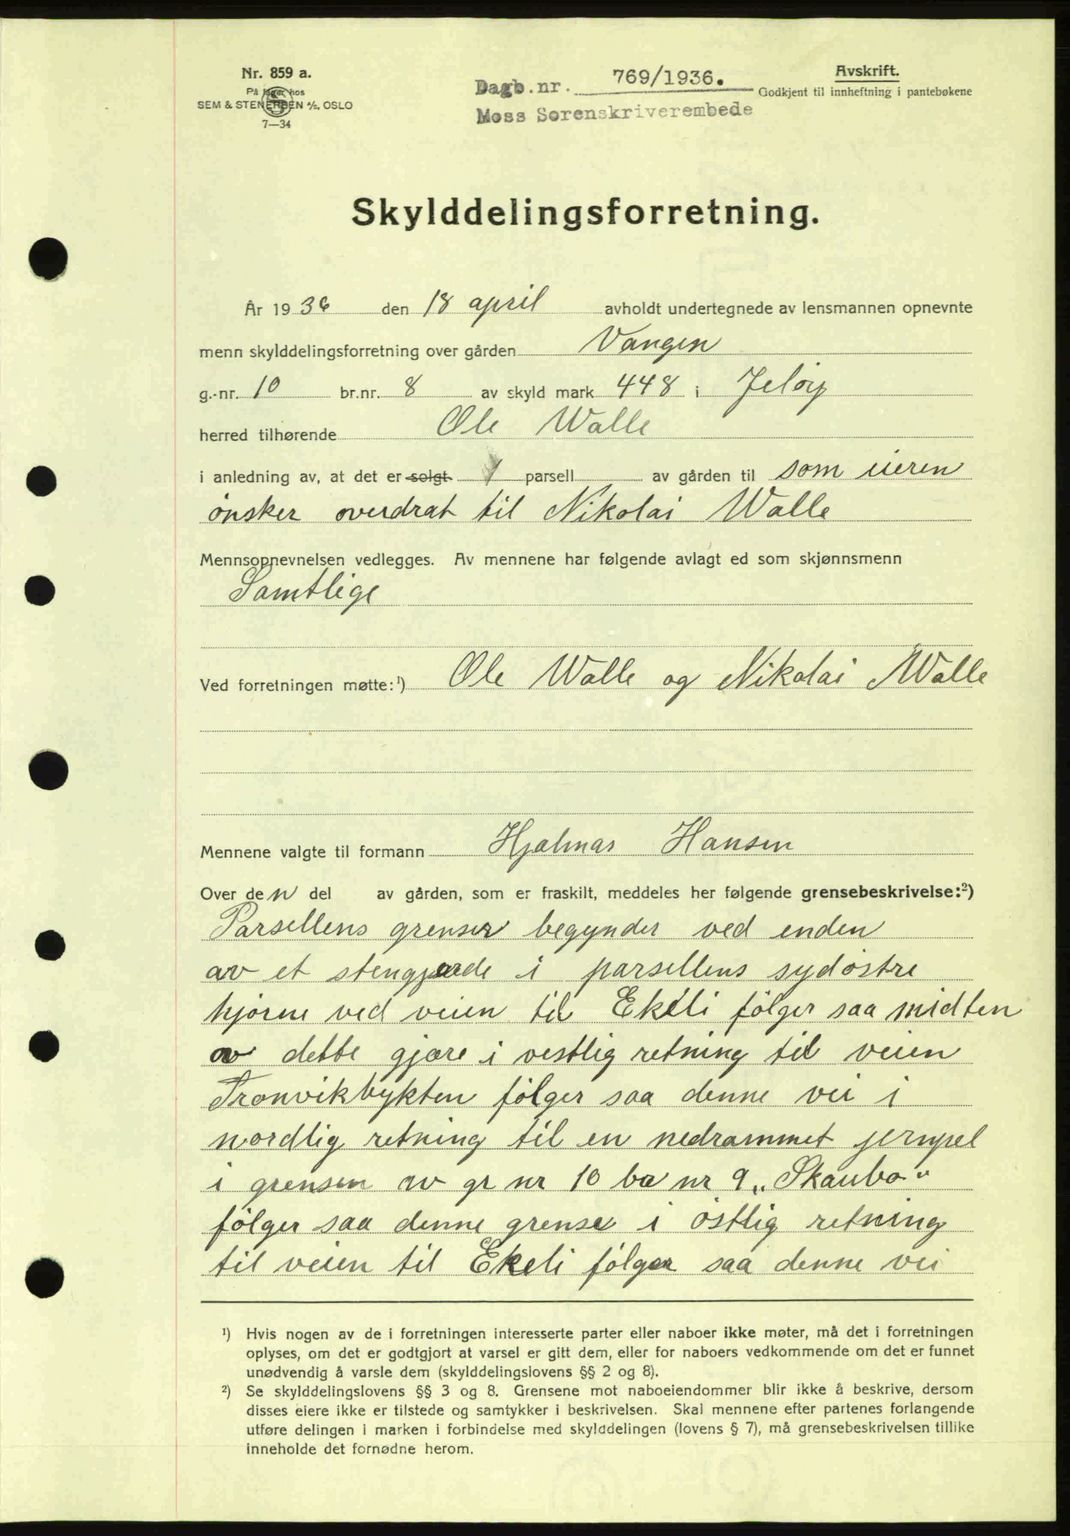 Nr. 859 a.
På lager hos
SEM & STENERSEN A/S, OSLO
7—34
Dagb.nr. 769/1936.
Moss Sorenskriverembede
Avskrift.
Godkjent til innheftning i pantebøkene
Skylddelingsforretning.
År 1936 den 18 april avholdt undertegnede av lensmannen opnevnte
menn skylddelingsforretning over gården Vangen
g.-nr. 10 br.nr. 8 av skyld mark 448 i Jeløy
herred tilhørende Ole Walle
i anledning av, at det er solgt 1 parsell av gården til som eieren
ønsker overdrat til Nikolai Walle
Mennsopnevnelsen vedlegges. Av mennene har følgende avlagt ed som skjønnsmenn
Samtlige
Ved forretningen møtte:¹) Ole Walle og Nikolai Walle
Mennene valgte til formann Hjalmar Hansen
Over den del av gården, som er fraskilt, meddeles her følgende grensebeskrivelse:²)
Parsellens grenser begynder ved enden
av et stengjærde i parsellens sydøstre
hjørne ved veien til Ekeli følger saa midten
av dette gjære i vestlig retning til veien
Tronvikbykten følger saa denne vei i
nordlig retning til en nedrammet jernpel
i grensen av gr nr 10 br nr 9 „Skaubo"
følger saa denne grense i østlig retning
til veien til Ekeli følger saa denne vei
¹) Hvis nogen av de i forretningen interesserte parter eller naboer ikke møter, må det i forretningen
oplyses, om det er godtgjort at varsel er gitt dem, eller for naboers vedkommende om det er funnet
unødvendig å varsle dem (skylddelingslovens §§ 2 og 8).
²) Se skylddelingslovens §§ 3 og 8. Grensene mot naboeiendommer blir ikke å beskrive, dersom
disses eiere ikke er tilstede og samtykker i beskrivelsen. Skal mennene efter partenes forlangende
utføre delingen i marken i forbindelse med skylddelingen (lovens § 7), må grensebeskrivelsen tillike
inneholde det fornødne herom.